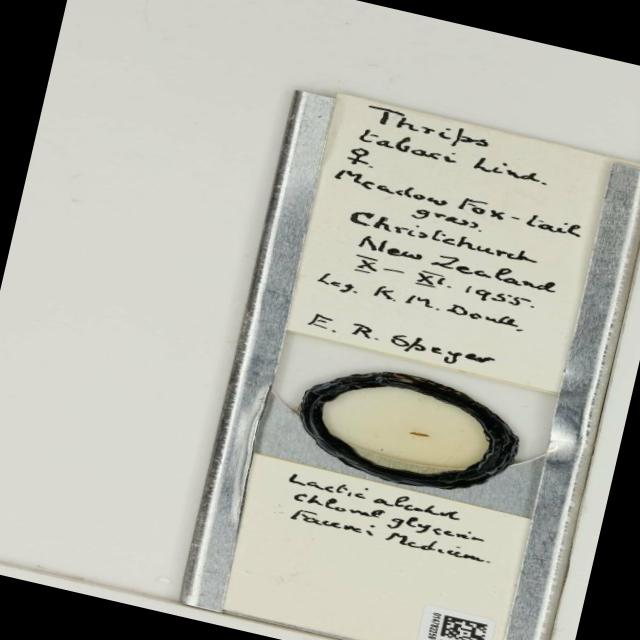 Thrips
tabaci Lind.
♀
Meadow Fox-tail
grass.
Christchurch
New Zealand
X — XI. 1955
Leg. K. M. Doull.
E. R. Speyer
Lactic alcohol
Chloral glycerin
Faure's Medium.